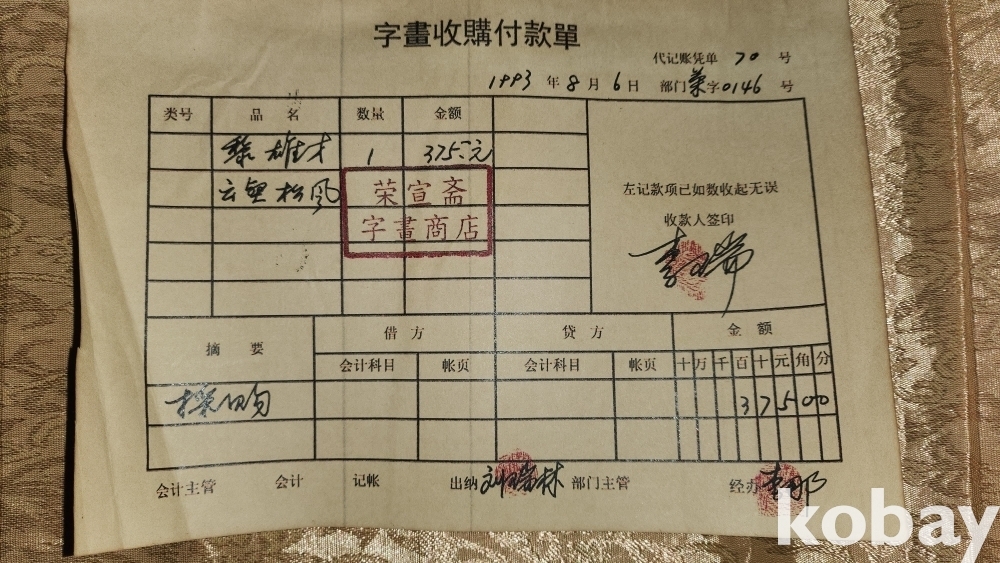 字畫收購付款單
代记账凭单 70 号
1993 年 8 月 6 日 部门 荣字 0146 号
类号 品名 数量 金额
黎雄才 1 375元
云壑松风
荣宣斋
字畫商店
左记款项已如数收起无误
收款人签印
摘要 借方 贷方 金额
会计科目 帐页 会计科目 帐页 十 万 千 百 十 元 角 分
采购 3 7 5 0 0
会计主管 会计 记帐 出纳 刘瑞林 部门主管 经办
kobay